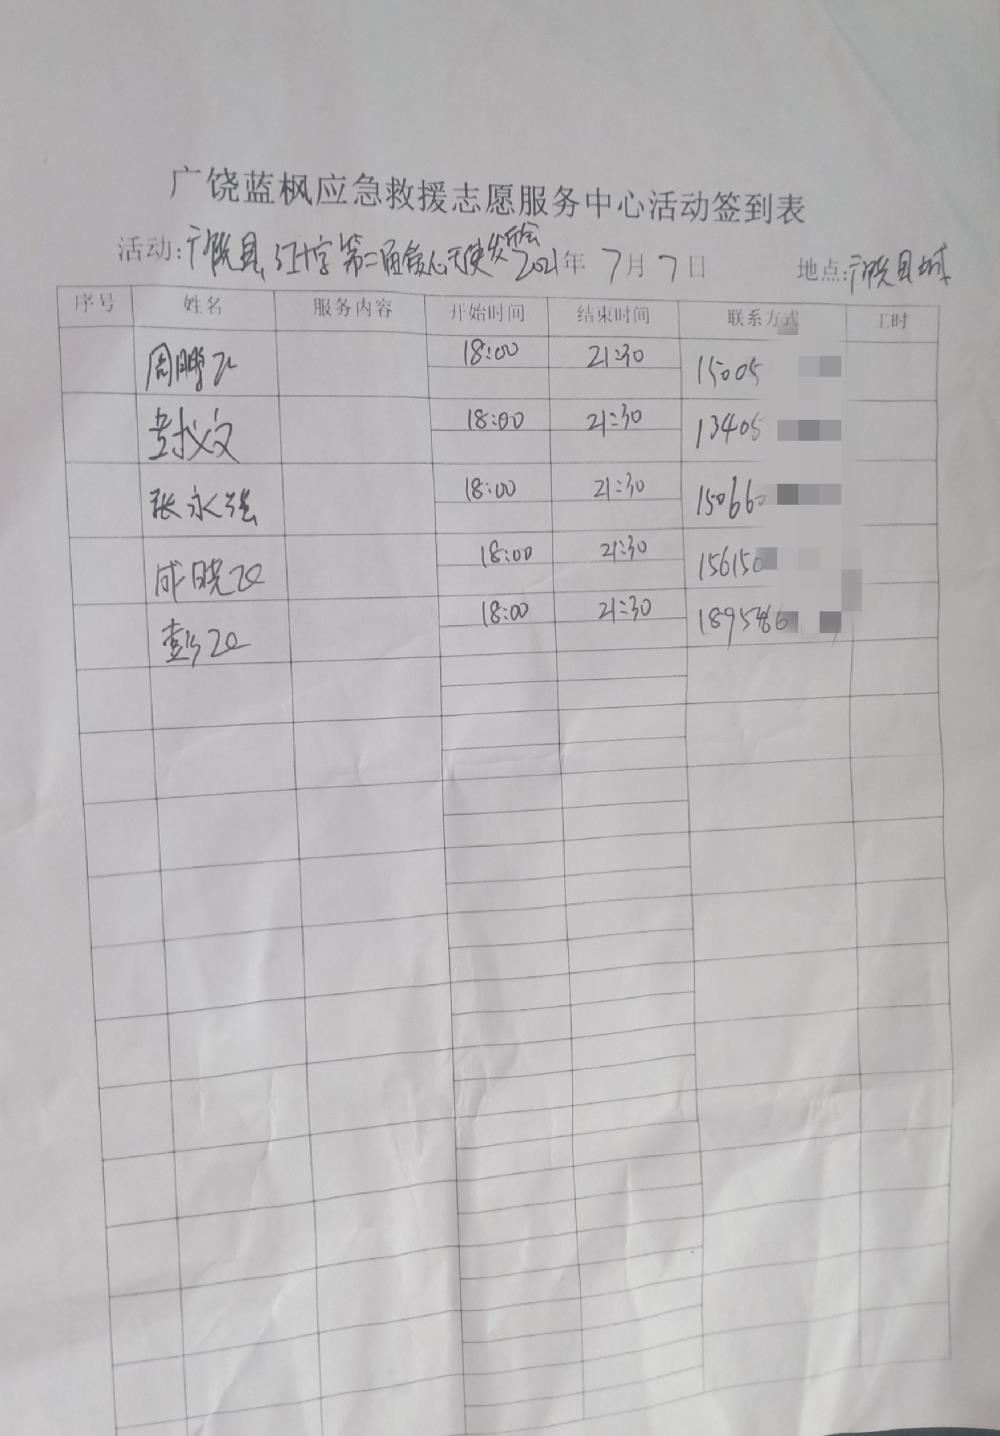 广饶蓝枫应急救援志愿服务中心活动签到表
活动:广饶县红十字第二届爱心天使发布会 2021年 7月 7日 地点:广饶县城
序号 姓名 服务内容 开始时间 结束时间 联系方式 工时
周鹏飞 18:00 21:30 15005
封义文 18:00 21:30 13405
张永强 18:00 21:30 15066
成晓 18:00 21:30 156150
彭 18:00 21:30 189546